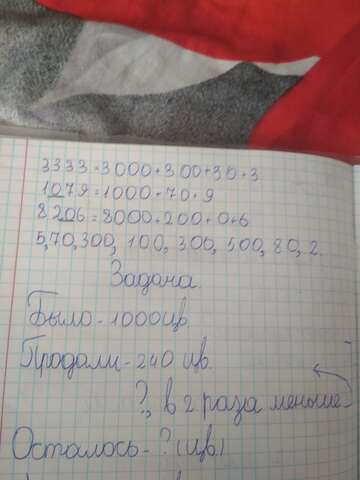 3333=3000+300+30+3
1079=1000+70+9
8206=8000+200+0+6
5,70,300, 100, 300, 500, 80, 2.
Задача
Было-1000цв.
Продали-240 цв.
?, в 2 раза меньше
Осталось-?(цв.)